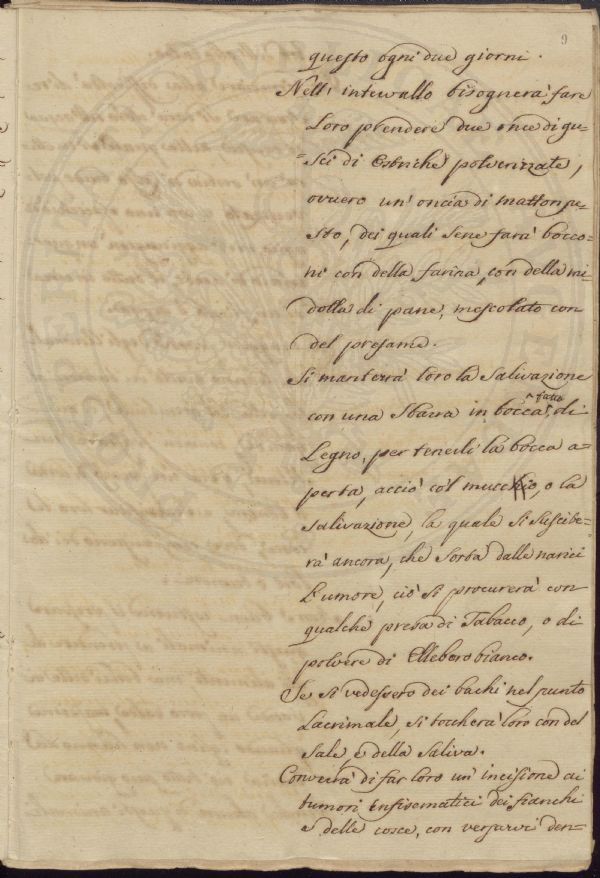 9
questo ogni due giorni.
Nell' intervallo bisognerà fare
Loro prendere due once di gu=
=sci di Ostriche polverizzate,
ovvero un' oncia di matton pe=
sto, dei quali se ne farà bocco=
ni con della farina, con della mi=
dolla di pane, mescolato con
del presame.
Si manterrà loro la Salivazione
con una Sbarra in bocca, ^fatta di
Legno, per tenerli la bocca a=
perta, acciò col mucchio, o la
Salivazione, la quale si susci
rà ancora, che sorta dalle narici
L'umore, ciò si procurerà con
qualche presa di Tabacco, o di
polvere di Elleboro bianco.
Se si vedessero dei bachi nel punto
Lacrimale, si toccherà loro con del
Sale e della Saliva.
Converrà di far loro un' incisione ai
tumori enfisematici dei fianchi
e delle cosce, con versarvi den=